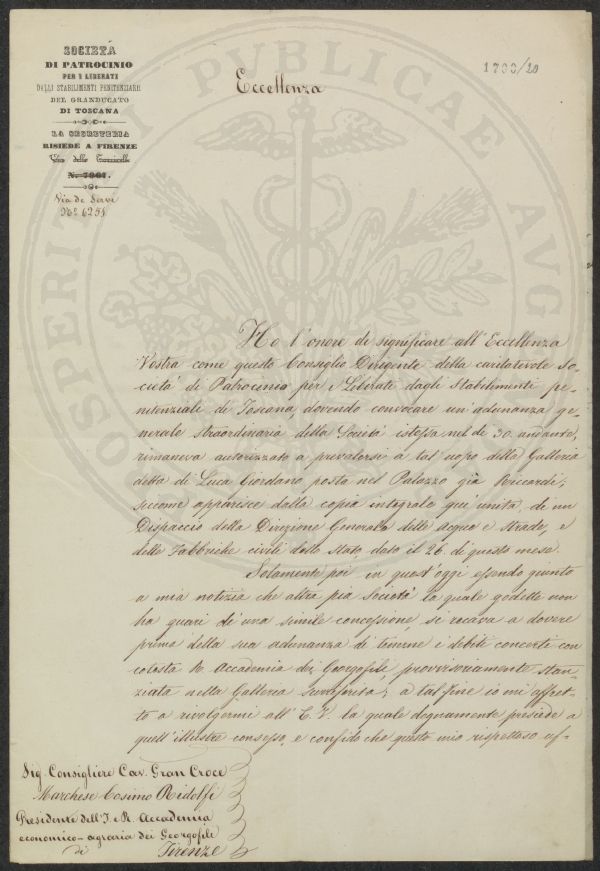 SOCIETÀ
DI PATROCINIO
PER I LIBERATI
DAGLI STABILIMENTI PENITENZIARII
DEL GRANDUCATO
DI TOSCANA
LA SEGRETERIA
RISIEDE A FIRENZE
Via delle
N.
Via de Servi
N.º 6251
1700/20
Eccellenza
Ho l'onore di significare all'Eccellenza
Vostra come questo Consiglio Dirigente della caritatevole So-
cietà di Patrocinio per i Liberati dagli Stabilimenti pe-
nitenziali di Toscana, dovendo convocare un'adunanza ge-
nerale straordinaria della Società istessa nel dì 30. andante,
rimaneva autorizzato a prevalersi a tal uopo della Galleria
detta di Luca Giordano posta nel Palazzo già Riccardi;
siccome apparisce dalla copia integrale qui unita, di un
Dispaccio della Direzione Generale delle Acque e Strade, e
delle Fabbriche civili dello Stato, dato il 26. di questo mese.
Solamente poi in quest'oggi essendo giunto
a mia notizia che altra pia Società la quale godette non
ha guari di una simile concessione, si recava a dovere
prima della sua adunanza di tenerne i debiti concerti con
cotesta R. Accademia dei Georgofili, provvisoriamente stan-
ziata nella Galleria surriferita; a tal fine io mi affret-
to a rivolgermi all'E. V. la quale degnamente presiede a
quell'illustre consesso, e confido che questo mio rispettoso uf-
Sig. Consigliere Cav. Gran Croce
Marchese Cosimo Ridolfi
Presidente dell'I. e R. Accademia
economico-agraria dei Georgofili
di Firenze
PROSPERITATI PUBLICAE AUG